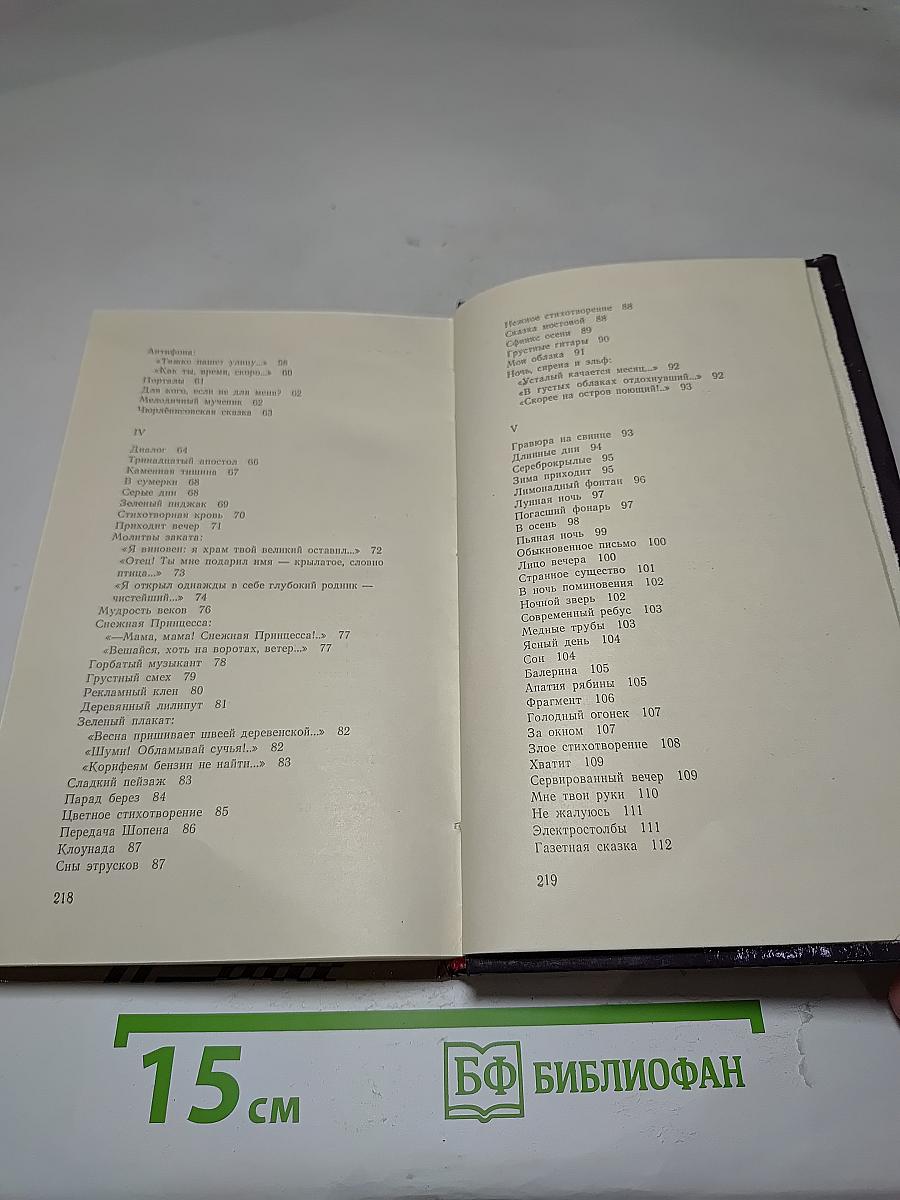 Антифоны:
«Тяжко пашет улицу...» 58
«Как ты, время, скоро...» 60
Порталы 61
Для кого, если не для меня? 62
Мелодичный мученик 62
Чюрлёнисовская сказка 63
IV
Диалог 64
Тринадцатый апостол 66
Каменная тишина 67
В сумерки 68
Серые дни 68
Зеленый пиджак 69
Стихотворная кровь 70
Приходит вечер 71
Молитвы заката:
«Я виновен: я храм твой великий оставил...» 72
«Отец! Ты мне подарил имя — крылатое, словно
птица...» 73
«Я открыл однажды в себе глубокий родник —
чистейший...» 74
Мудрость веков 76
Снежная Принцесса:
«—Мама, мама! Снежная Принцесса!..» 77
«Вешайся, хоть на воротах, ветер...» 77
Горбатый музыкант 78
Грустный смех 79
Рекламный клен 80
Деревянный лилипут 81
Зеленый плакат:
«Весна пришивает швеей деревенской...» 82
«Шуми! Обламывай сучья!..» 82
«Корифеям бензин не найти...» 83
Сладкий пейзаж 83
Парад берез 84
Цветное стихотворение 85
Передача Шопена 86
Клоунада 87
Сны этрусков 87
218
Нежное стихотворение 88
Сказка мостовой 88
Сфинкс осени 89
Грустные гитары 90
Мои облака 91
Ночь, сирена и эльф:
«Усталый качается месяц...» 92
«В густых облаках отдохнувший...» 92
«Скорее на остров поющий!..» 93
V
Гравюра на свинце 93
Длинные дни 94
Сереброкрылые 95
Зима приходит 95
Лимонадный фонтан 96
Лунная ночь 97
Погасший фонарь 97
В осень 98
Пьяная ночь 99
Обыкновенное письмо 100
Лицо вечера 100
Странное существо 101
В ночь поминовения 102
Ночной зверь 102
Современный ребус 103
Медные трубы 103
Ясный день 104
Сон 104
Балерина 105
Апатия рябины 105
Фрагмент 106
Голодный огонек 107
За окном 107
Злое стихотворение 108
Хватит 109
Сервированный вечер 109
Мне твои руки 110
Не жалуюсь 111
Электростолбы 111
Газетная сказка 112
219
15 см
БФ БИБЛИОФАН